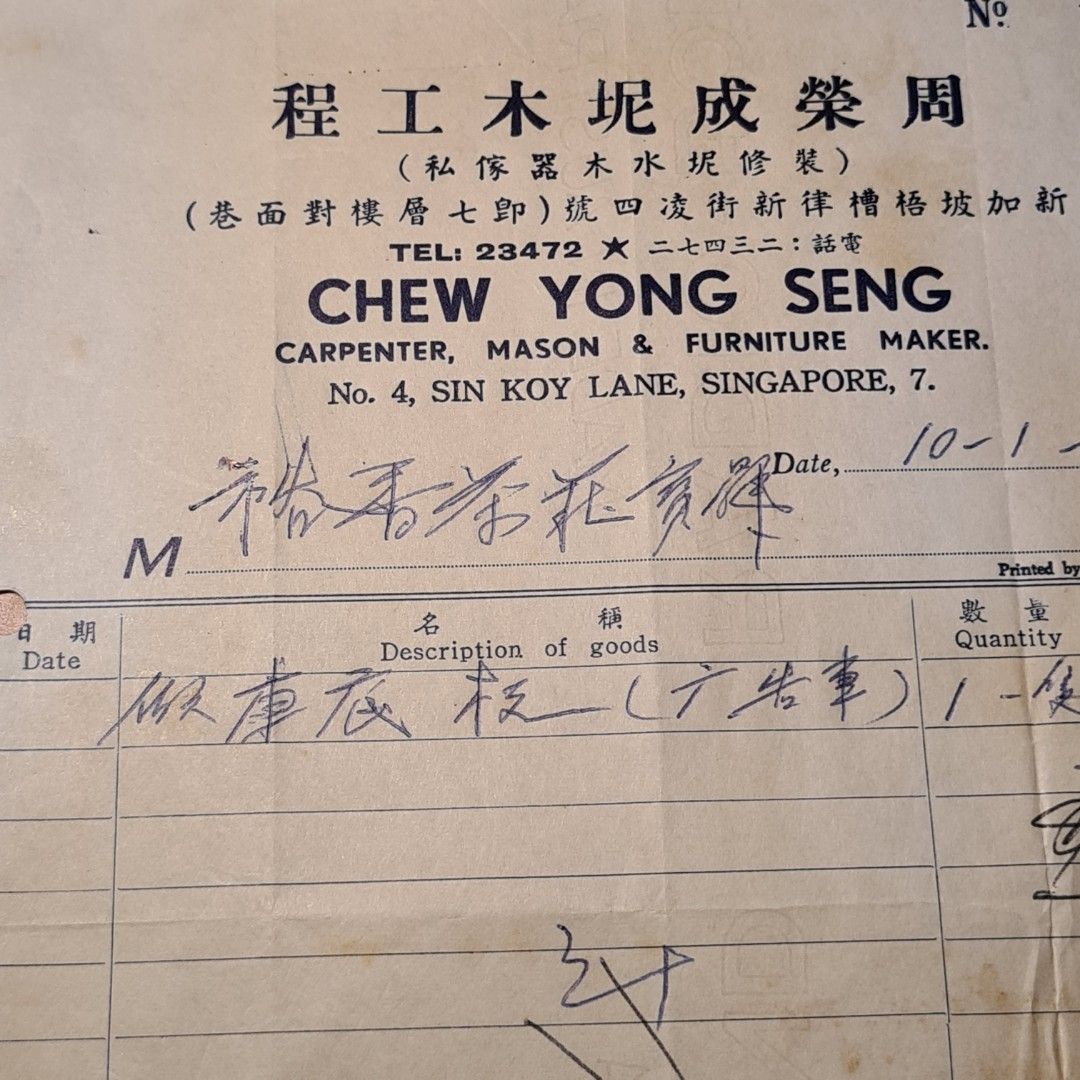 No
周榮成坭木工程
(裝修坭水木器傢私)
新加坡梧槽律新街凌四號(卽七層樓對面巷)
TEL: 23472 ★ 電話:二三四七二
CHEW YONG SENG
CARPENTER, MASON & FURNITURE MAKER.
No. 4, SIN KOY LANE, SINGAPORE, 7.
Date, 10-1-
M 香茶莊寶號
Printed by
日期 名稱 數量
Date Description of goods Quantity
做車底板(广告車) 1-隻